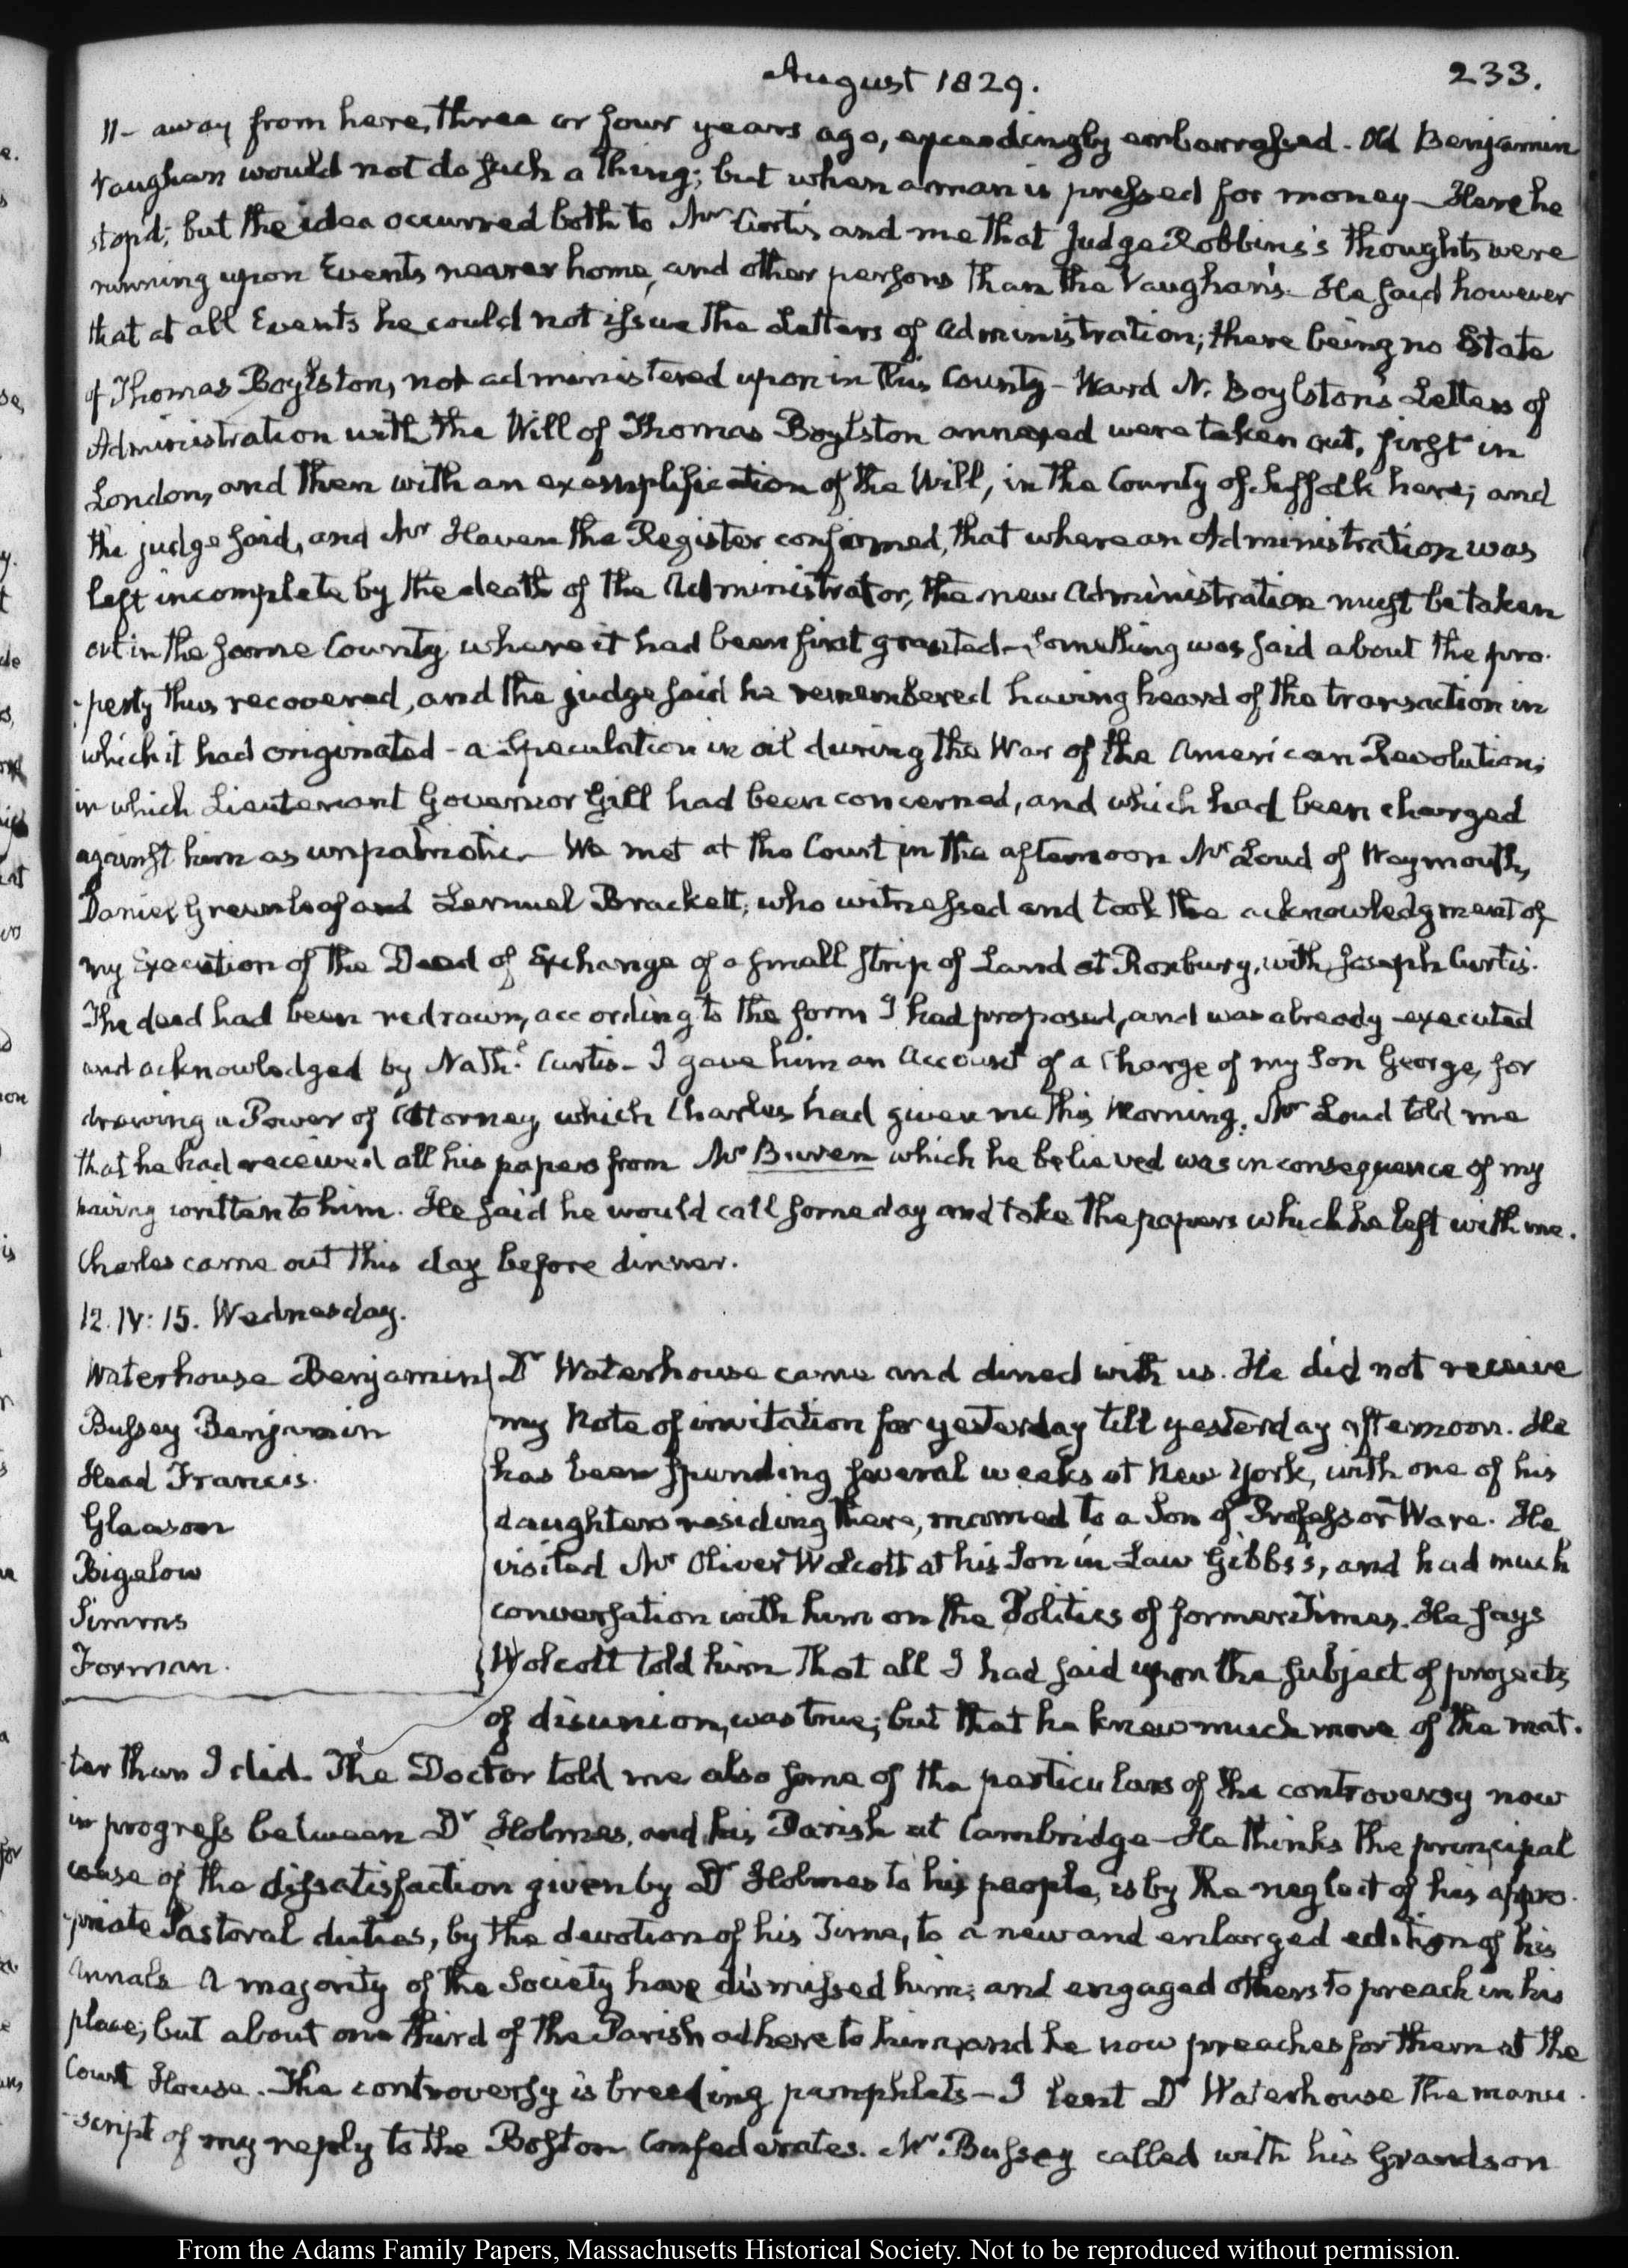 August 1829.
233.
11- away from here, three or four years ago, exceedingly embarrassed. Old Benjamin
Vaughan would not do such a thing; but when a man is pressed for money— Here he
stop'd; but the idea occurred both to Mr Curtis and me that Judge Robbins's thoughts were
running upon Events nearer home, and other persons than the Vaughan's. He said however
that at all Events he could not issue the Letters of Administration; there being no Estate
of Thomas Boylston, not administered upon in this County— Ward N. Boylston's Letters of
Administration with the Will of Thomas Boylston annexed were taken out, first in
London, and then with an exemplification of the Will, in the County of Suffolk here; and
the judge said, and Mr Haven the Register confirmed, that where an Administration was
left incomplete by the death of the Administrator, the new Administration must be taken
out in the same County where it had been first granted— Something was said about the pro-
-perty thus recovered, and the judge said he remembered having heard of the transaction in
which it had originated - a Speculation in oil during the War of the American Revolution;
in which Lieutenant Governor Gill had been concerned, and which had been charged
against him as unpatriotic— We met at the Court in the afternoon Mr Loud of Weymouth,
Daniel Greenleaf and Lemuel Brackett, who witnessed and took the acknowledgment of
my Execution of the Deed of Exchange of a small strip of Land at Roxbury, with Joseph Curtis.
The deed had been redrawn, according to the form I had proposed, and was already executed
and acknowledged by Nathl Curtis— I gave him an Account of a Charge of my Son George, for
drawing a Power of Attorney, which Charles had given me this Morning. Mr Loud told me
that he had received all his papers from Mr Buren which he believed was in consequence of my
having written to him. He said he would call some day and take the papers which he left with me.
Charles came out this day before dinner.
12. IV: 15. Wednesday.
Waterhouse Benjamin
Bussey Benjamin
Head Francis.
Gleason
Bigelow
Simms
Forman.
Dr Waterhouse came and dined with us. He did not receive
my Note of invitation for yesterday till yesterday afternoon. He
has been spending several weeks at New York, with one of his
daughters residing there, married to a Son of Professor Ware. He
visited Mr Oliver Wolcott at his Son in Law Gibbs's, and had much
conversation with him on the Politics of former Times. He says
Wolcott told him that all I had said upon the subject of projects
of disunion, was true; but that he knew much more of the mat-
-ter than I did. The Doctor told me also some of the particulars of the controversy now
in progress between Dr Holmes, and his Parish at Cambridge— He thinks the principal
cause of the dissatisfaction given by Dr Holmes to his people, is by the neglect of his appro-
-priate Pastoral duties, by the devotion of his Time, to a new and enlarged edition of his
Annals A majority of the Society have dismissed him; and engaged others to preach in his
place; but about one third of the Parish adhere to him, and he now preaches for them at the
Court House. The controversy is breeding pamphlets— I lent Dr Waterhouse the manu-
-script of my reply to the Boston Confederates. Mr Bussey called with his Grandson
From the Adams Family Papers, Massachusetts Historical Society. Not to be reproduced without permission.